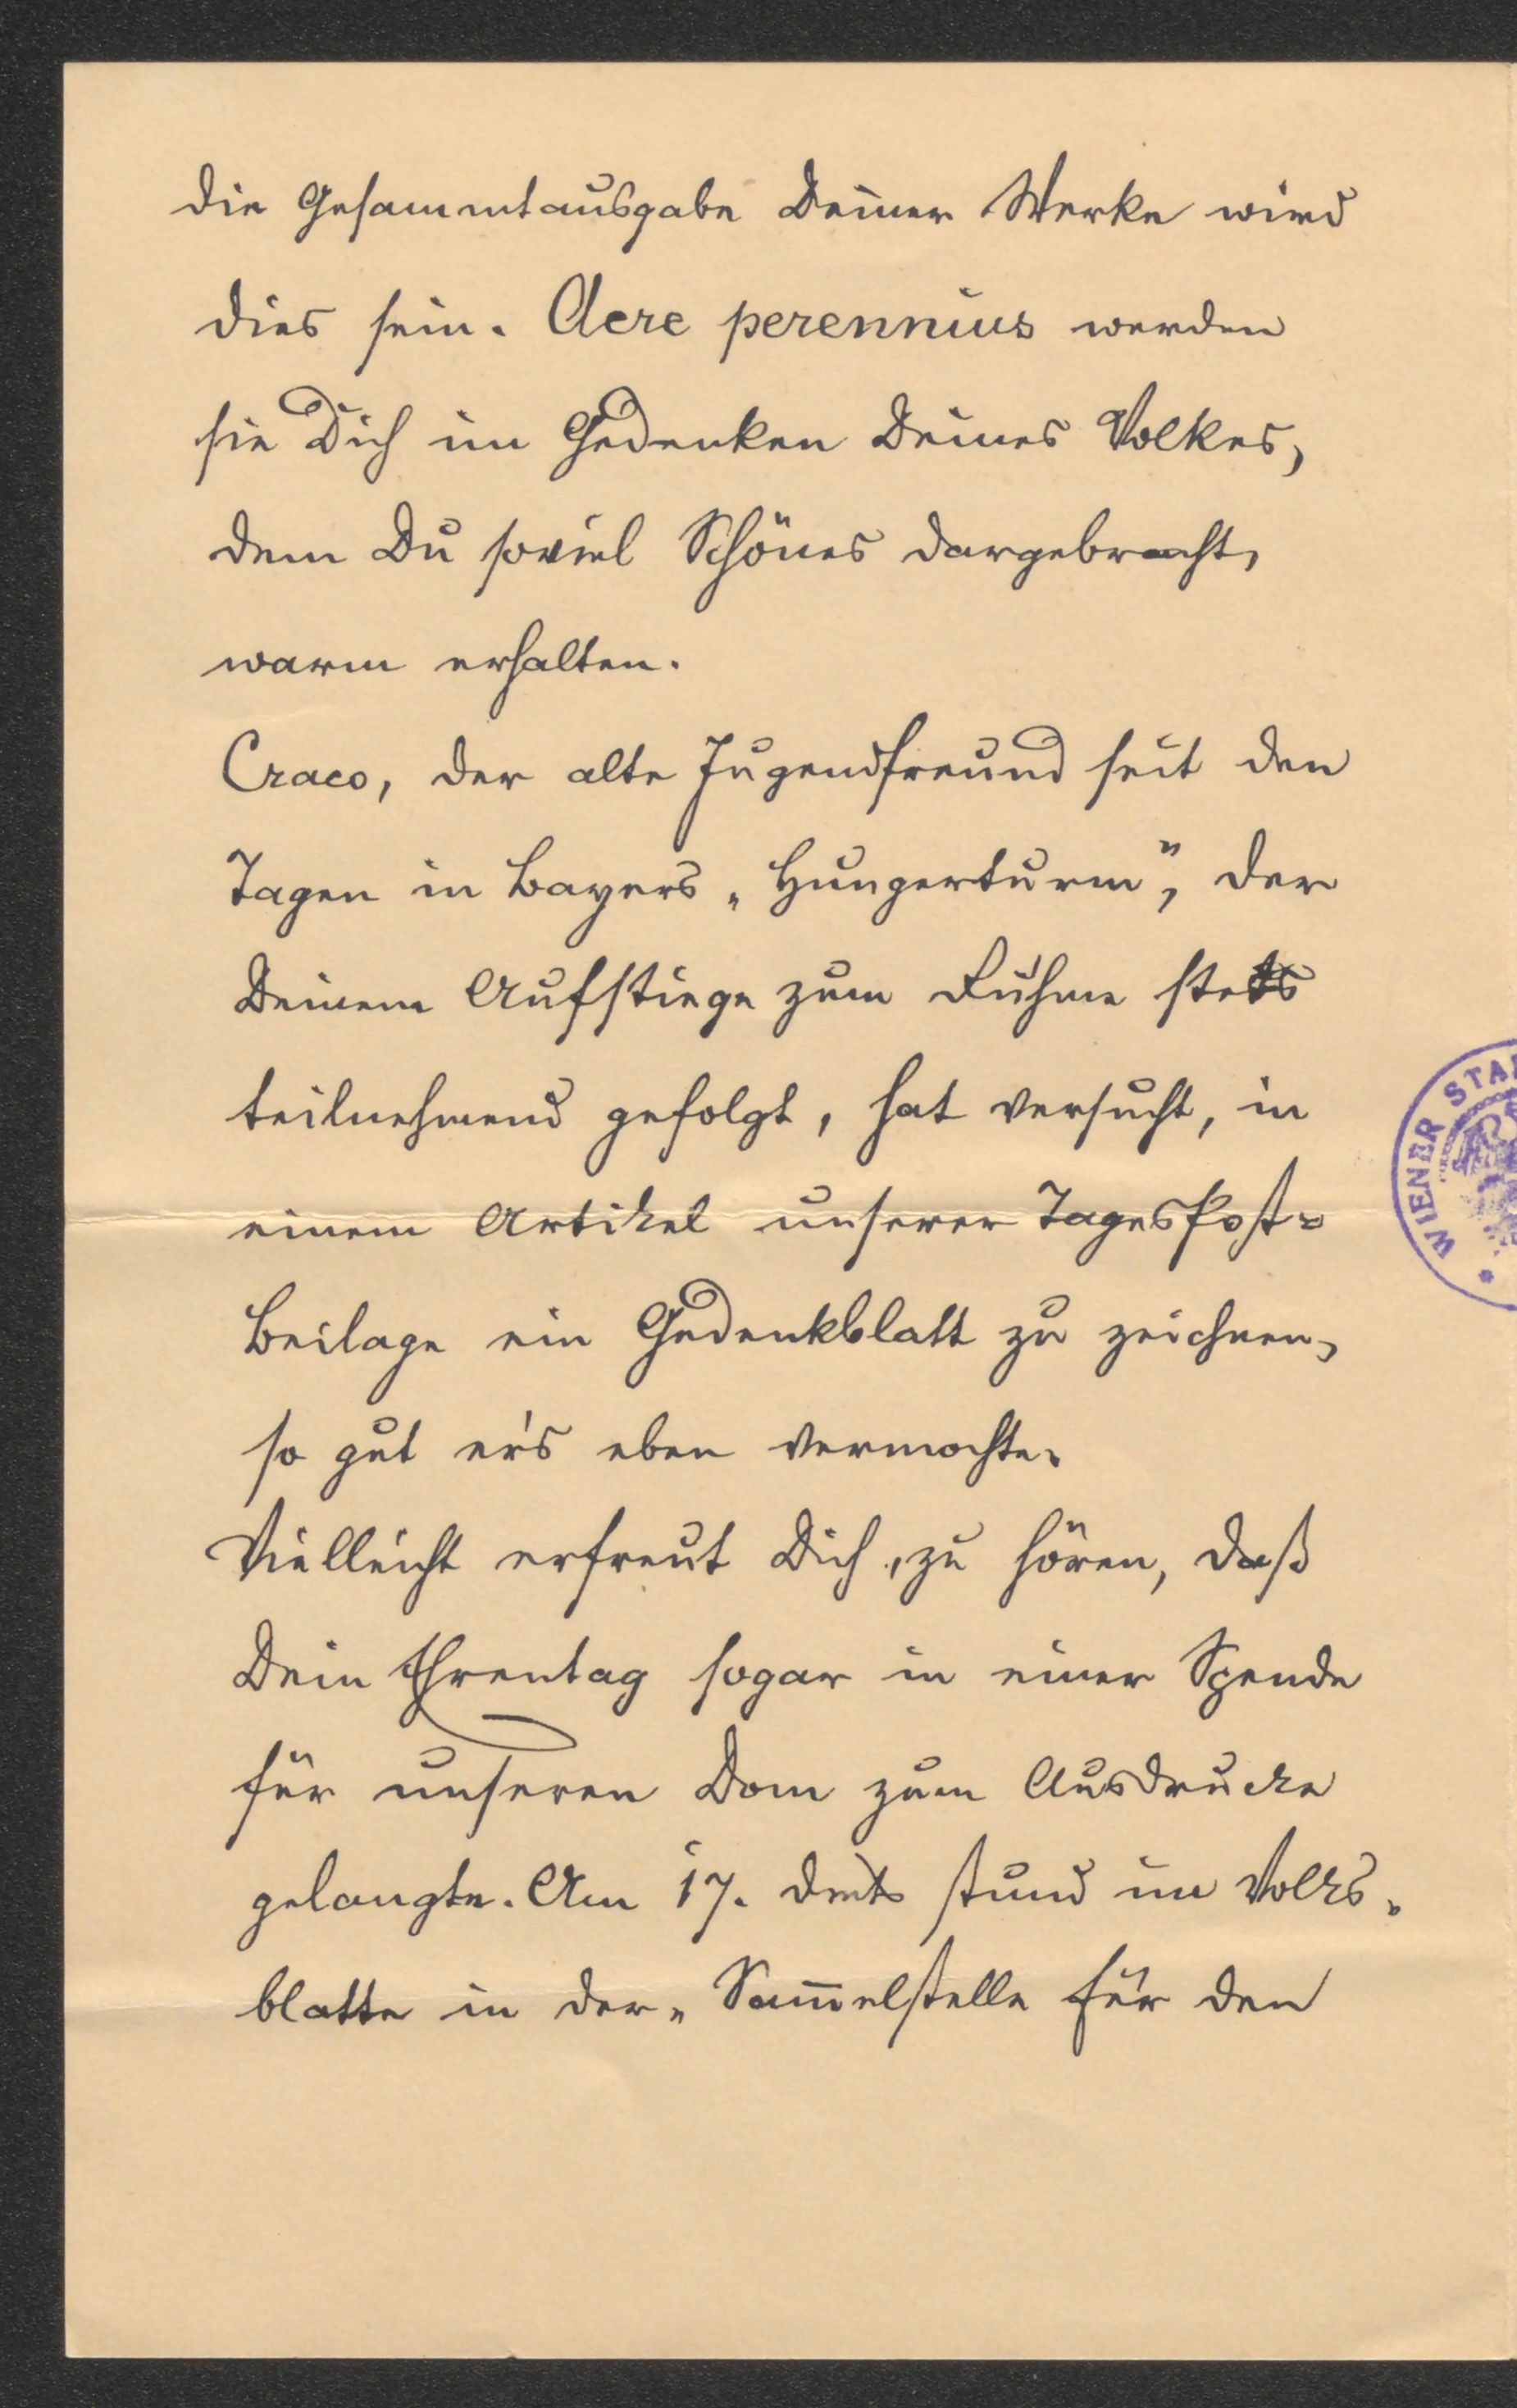 die Gesammtausgabe Deiner Werke wird
dies sein. Aere perennius werden
sie Dich im Gedenken Deines Volkes,
dem Du soviel Schönes dargebracht,
warm erhalten.
Craco, der alte Jugendfreund seit den
Tagen in Bayers „Hungerturm“, der
Deinem Aufstiege zum Ruhme stets
teilnehmend gefolgt, hat versucht, in
einem Artikel unserer Tagespost=
Beilage ein Gedenkblatt zu zeichnen,
so gut er's eben vermochte.
Vielleicht erfreut Dich, zu hören, daß
Dein Ehrentag sogar in einer Spende
für unseren Dom zum Ausdrucke
gelangte. Am 17. stund im Volks-
blatte in der „Sam̅elstelle für den
WIENER STA